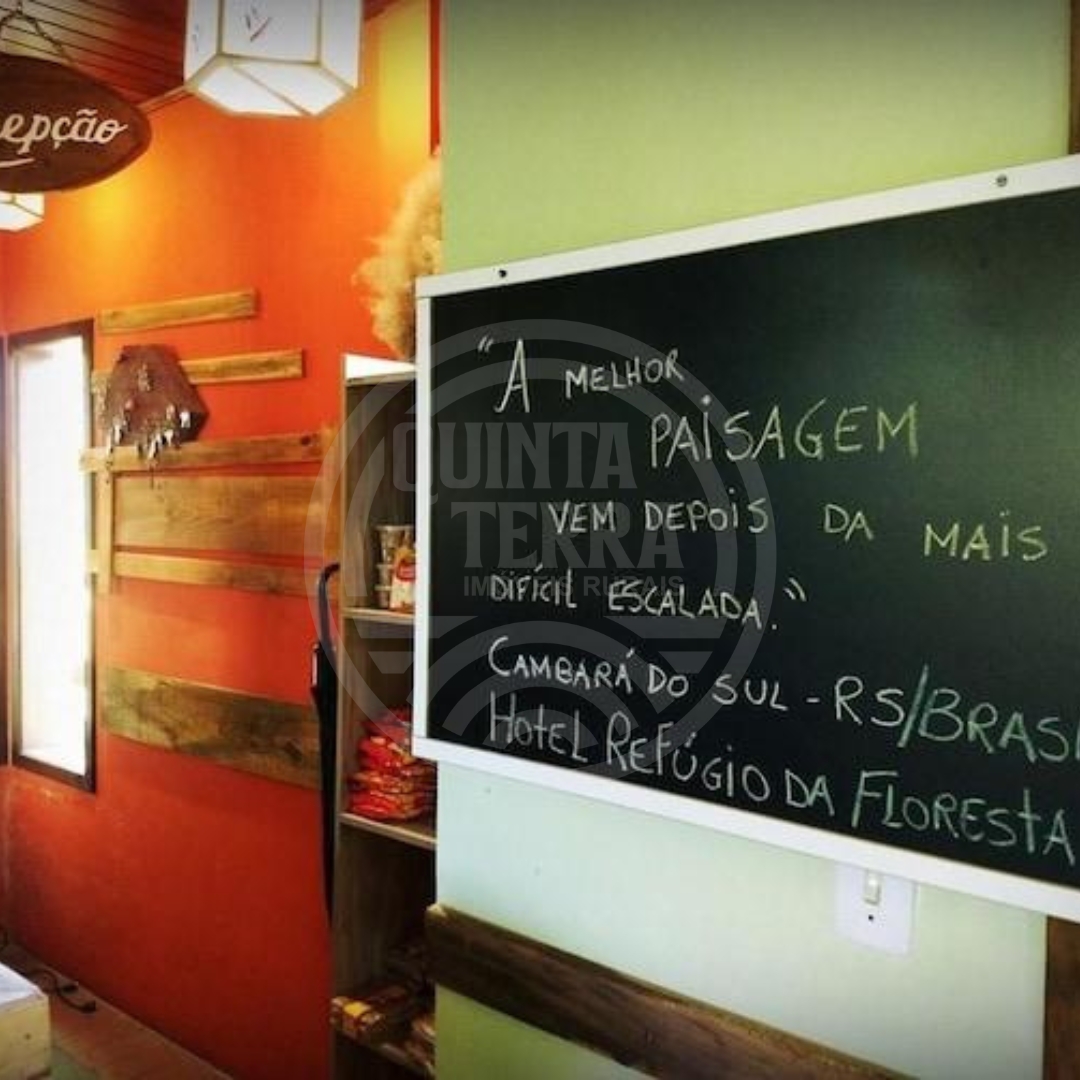 epção
"A MELHOR
PAISAGEM
VEM DEPOIS DA MAIS
DIFÍCIL ESCALADA."
CAMBARÁ DO SUL - RS/BRASI
HOTEL REFÚGIO DA FLORESTA
QUINTA
TERRA
IMÓVEIS RURAIS